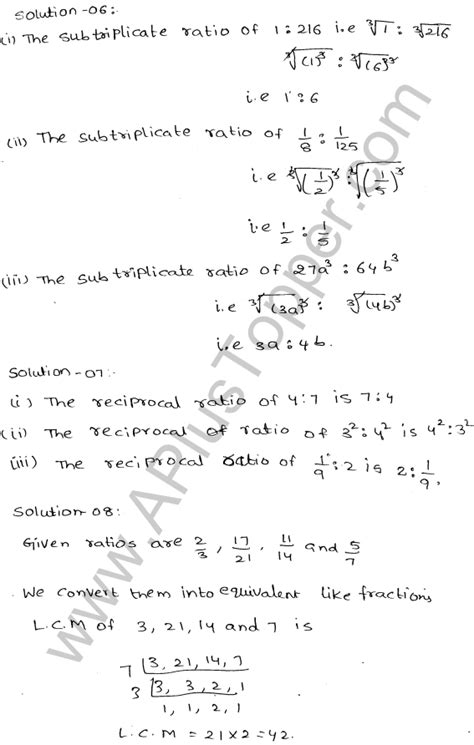 Solution-06:-
(i) The subtriplicate ratio of 1:216 i.e ∛1 : ∛216
∛(1)³ : ∛(6)³
i.e 1:6
(ii) The subtriplicate ratio of 1/8 : 1/125
i.e ∛(1/2)³ : ∛(1/5)³
i.e 1/2 : 1/5
(iii) The subtriplicate ratio of 27a³ : 64b³
i.e ∛(3a)³ : ∛(4b)³
i.e 3a : 4b.
Solution-07:-
(i) The reciprocal ratio of 4:7 is 7:4
(ii) The reciprocal of ratio of 3² : 4² is 4² : 3²
(iii) The reciprocal ratio of 1/9 : 2 is 2 : 1/9.
Solution-08:
Given ratios are 2/3, 17/21, 11/14 and 5/7
We convert them into equivalent like fractions
L.C.M of 3, 21, 14 and 7 is
7 | 3, 21, 14, 7
3 | 3, 3, 2, 1
1, 1, 2, 1
L.C.M = 21×2=42.
www.APlusTopper.com